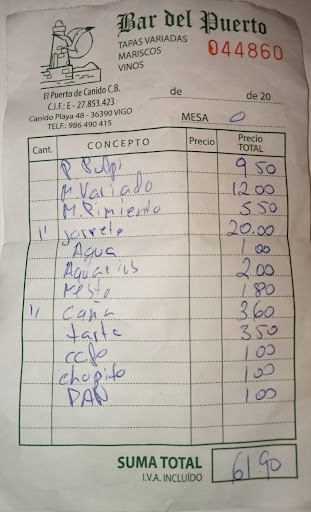 Bar del Puerto
TAPAS VARIADAS
MARISCOS
VINOS
044860
El Puerto de Canido C.B.
C.I.F.: E - 27.853.423
Canido Playa 48 - 36390 VIGO
TELF.: 986 490 415
de de 20
MESA 0
Cant. CONCEPTO Precio Precio TOTAL
P. Pulpi 9 50
M Variado 12.00
M. Pimiento 5 50
1/ jarrete 20.00
Agua 1 00
Aquarius 2.00
1 80
1/ caña 3.60
tarta 3.50
cafe 1.00
chopito 1.00
PAN 1.00
SUMA TOTAL 61.90
I.V.A. INCLUÍDO